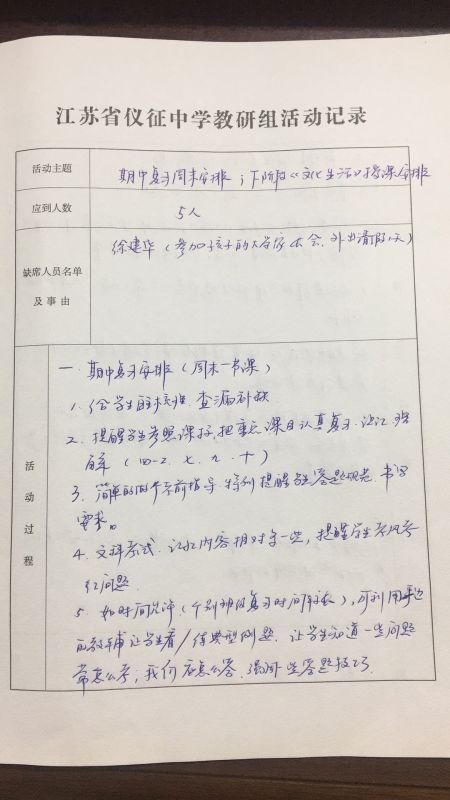 江苏省仪征中学教研组活动记录
活动主题
期中复习周末安排；下阶段《文化生活》授课安排
应到人数
5人
缺席人员名单
及事由
徐建华（参加孩子的大学家长会，外出请假1天）
活动过程
一、期中复习安排（周末一节课）
1、给学生自主梳理 查漏补缺
2、提醒学生参照课标,把重点课目认真复习.记忆理
解（四-2、七、九、十）
3、简单的期中考前指导.特别提醒学生答题规范.书写
要求。
4、文科考试.记忆内容相对多一些，提醒学生考风考
纪问题.
5、如时间允许（个别班级复习时间较长），可利用手边
的教辅让学生看/练典型例题.让学生知道一些问题
常怎么考；我们应怎么答.强调一些答题技巧.